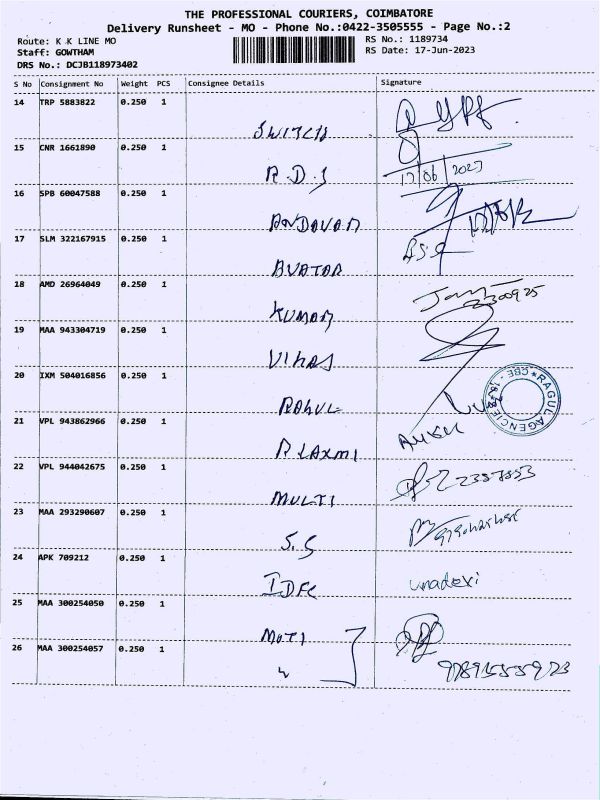 THE PROFESSIONAL COURIERS, COIMBATORE
Delivery Runsheet - MO - Phone No.:0422-3505555 - Page No.:2
Route: K K LINE MO
RS No.: 1189734
Staff: GOWTHAM
RS Date: 17-Jun-2023
DRS No.: DCJB118973402
S No Consignment No Weight PCS Consignee Details Signature
14 TRP 5883822 0.250 1
SWITCH
15 CNR 1661890 0.250 1
R.D.S 17/06/2023
16 SPB 60047588 0.250 1
ANDAVAR
17 SLM 322167915 0.250 1
AVATAR
18 AMD 26964049 0.250 1
KUMAR
19 MAA 943304719 0.250 1
VIKAS
20 IXM 504016856 0.250 1
RAHUL
RAGUL AGENCIES * CBE - 18 *
21 VPL 943862966 0.250 1
R LAXMI
22 VPL 944042675 0.250 1
MULTI
23 MAA 293290607 0.250 1
S.S
24 APK 709212 0.250 1
IDFC umadevi
25 MAA 300254050 0.250 1
MOTI
26 MAA 300254057 0.250 1